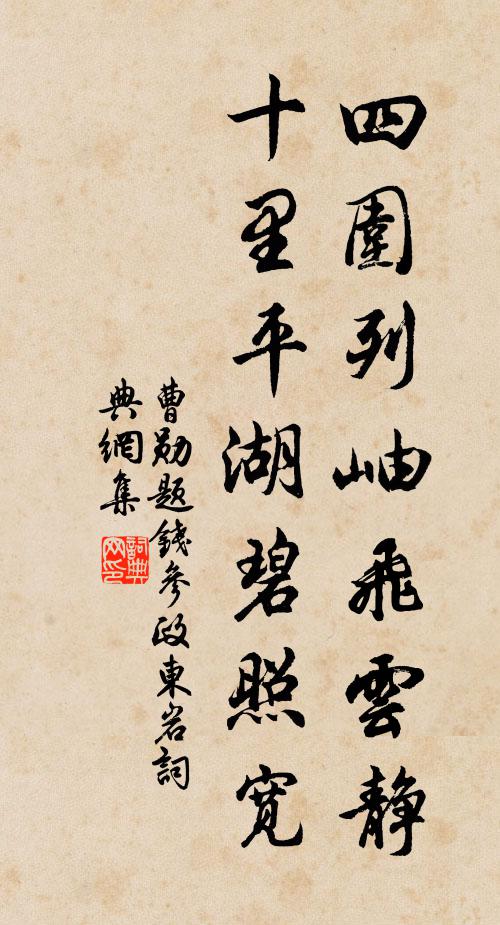 四圍列岫飛雲静
十里平湖碧照寬
曹勛题錢參政東岩詞
典網集
詞典网印